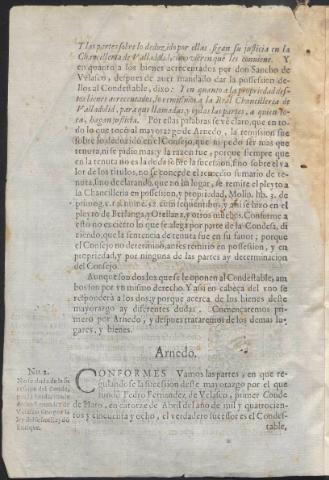 Y las partes sobre lo deduzido por ellas, sigan su justicia en la
Chancilleria de Valladolid, como vieren que les conuiene. Y
en quanto a los bienes acrecentados por don Sancho de
Velasco, despues de auer mandado dar la possession de-
llos al Condestable, dixo: Y en quanto a la propriedad des-
tos bienes acrecentados, lo remitimos a la Real Chancilleria de
Valladolid, para que llamadas, y oydas las partes, a quien to-
ca, hagan justicia. Por estas palabras se vé claro, que en to-
do lo que tocó al mayorazgo de Arnedo, la remission fue
sobre lo deduzido en el Consejo, que ni pedo ser mas que
tenuta, ni se pidio mas: y la razon fue, porque siempre que
en la tenuta no ay duda sobre la sucession, sino sobre el va
lor de los titulos, no se concede el remedio sumario de te-
nuta, sino declarando, que no ha lugar, se remite el pleyto a
la Chancilleria en possession, y propriedad, Molin. lib. 3. de
primog. c. 13. num. 52. cum sequentibus, y assi se hizo en el
pleyto de Berlanga, y Orellana, y otros muchos. Conforme a
esto no es cierto lo que se alega por parte de la Condesa, di
ziendo, que la sentencia de tenuta fue en su fauor; porque
el Consejo no determinò, antes remitio en possession, y en
propriedad, y por ninguna de las partes ay determinacion
del Consejo.
Aunque son dos los que se oponen al Condestable, am
bos son por vn mismo derecho. Y assi en cabeça del vno se
responderà a los dos; y porque acerca de los bienes deste
mayorazgo ay diferentes dudas. Començaremos pri-
mero por Arnedo, y despues trataremos de los demas lu-
gares, y bienes.
Arnedo.
Nu. 2.
CONFORMES Vamos las partes, en que re-
gulandose la sucession deste mayorazgo por el que
fundò Pedro Fernandez de Velasco, primer Conde
de Haro, en catorze de Abril del año de mil y quatrocien-
tos y cincuenta y ocho, el verdadero sucessor es el Condes-
table,